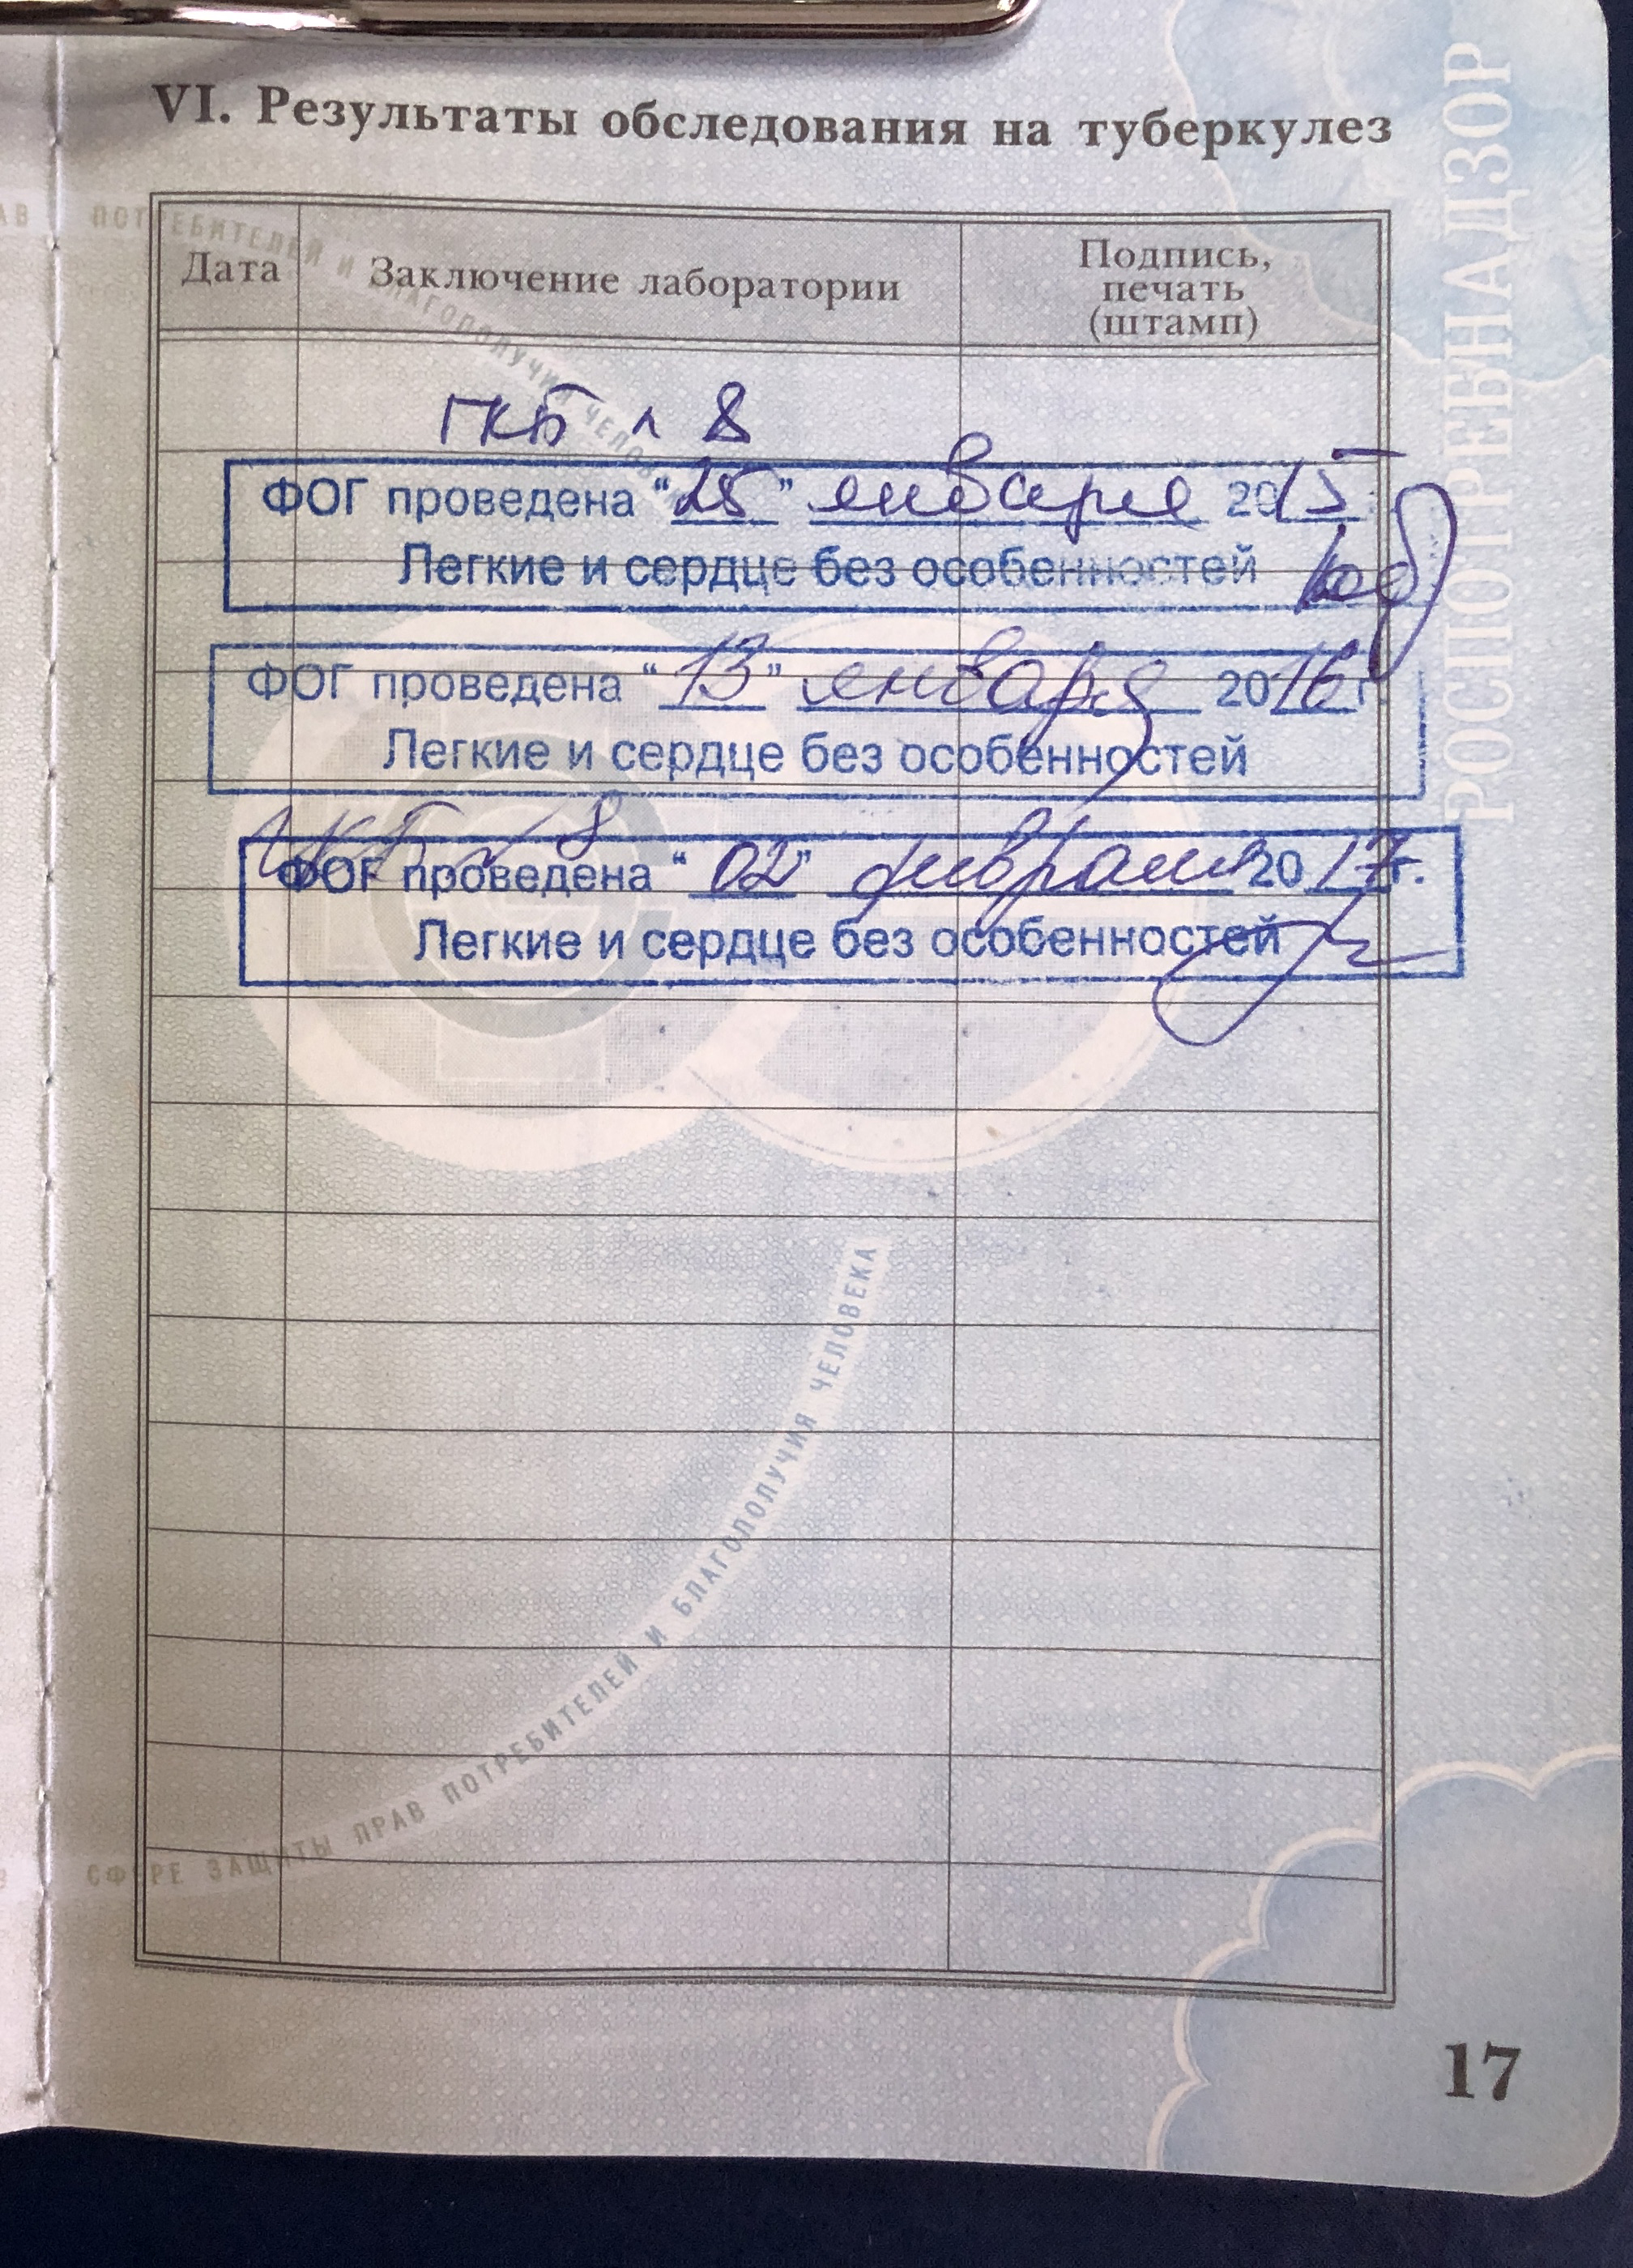 VI. Результаты обследования на туберкулез
РОСПОТРЕБНАДЗОР
АВ ПОТРЕБИТЕЛЕЙ И БЛАГОПОЛУЧИЯ ЧЕЛОВ
Дата
Заключение лаборатории
Подпись,
печать
(штамп)
ГКБ № 8
ФОГ проведена “25” января 2015
Легкие и сердце без особенностей
ФОГ проведена “13” января 2016 г.
Легкие и сердце без особенностей
ГКБ № 8
ФОГ проведена “02” февраля 2017 г.
Легкие и сердце без особенностей
СФЕРЕ ЗАЩИТЫ ПРАВ ПОТРЕБИТЕЛЕЙ И БЛАГОПОЛУЧИЯ ЧЕЛОВЕКА
17